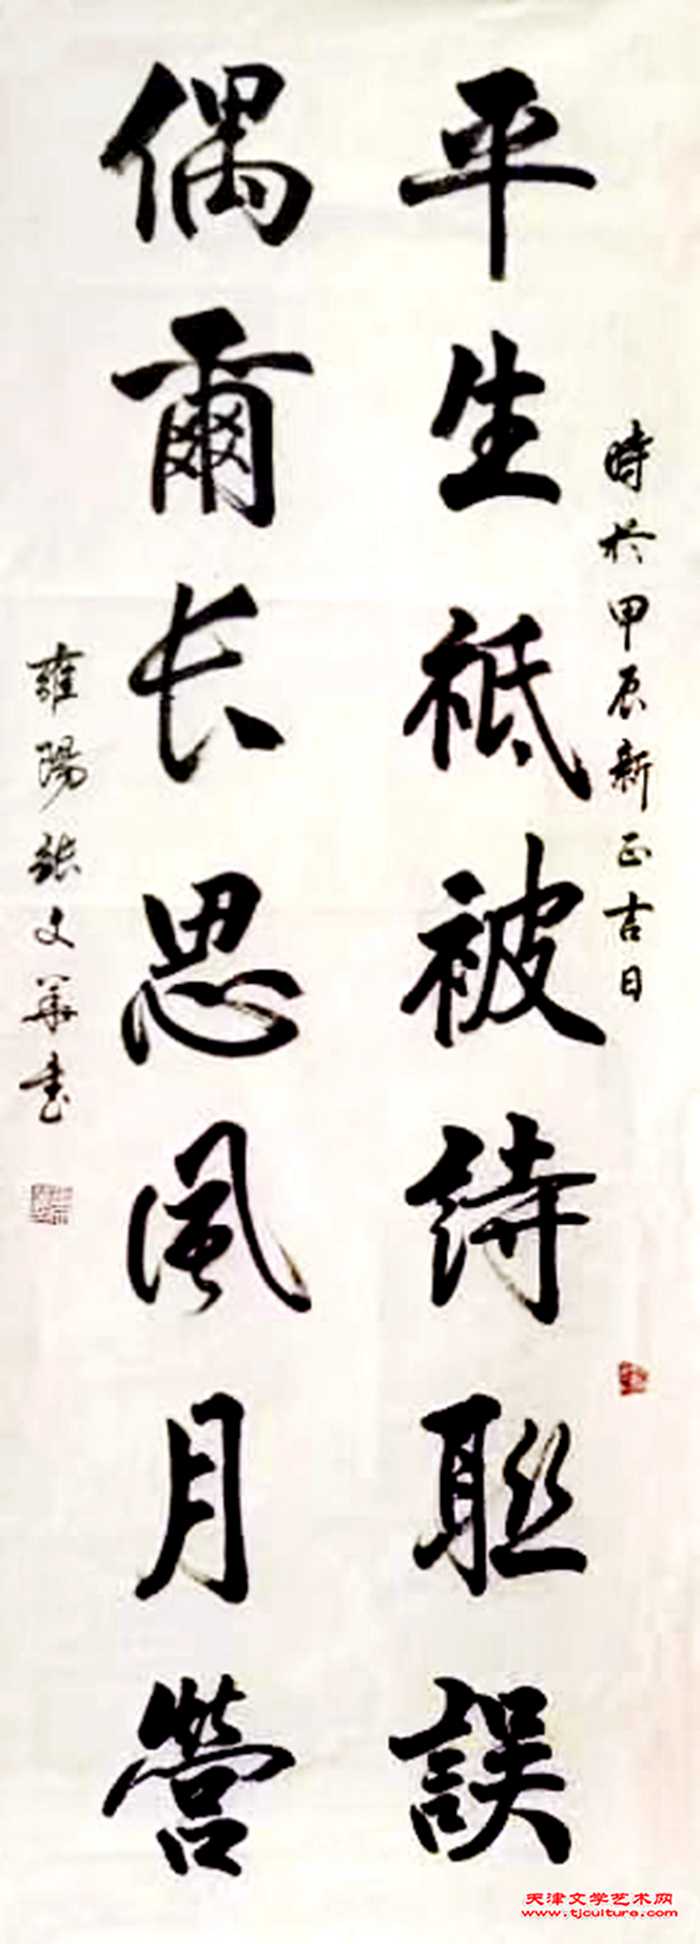 時於甲辰新正吉日
平生祗被詩聯誤
偶爾长思風月營
雍陽張文華書
天津文学艺术网
www.tjculture.com